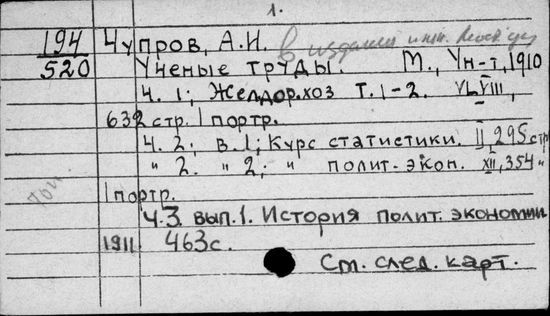 1.
194 Чупров, А.И. в издании
520 Ученые труды. М., Ун-т, 1910
ч. 1; Желдор.хоз т. 1-2. VI, VIII,
632 стр. 1 портр.
ч. 2; в. 1; Курс статистики. II, 295 стр
" 2. " 2; " полит.-экон. XII, 354 "
1 портр.
ч. 3. вып. 1. История полит. экономии
1911. 463 с.
См. след. карт.